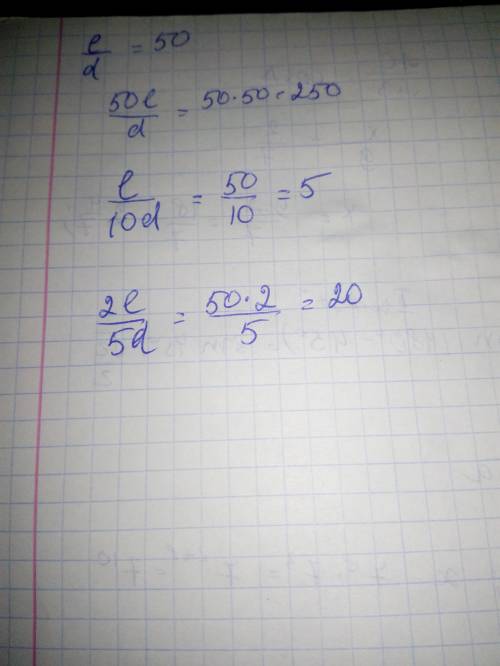 e/d = 50
50e/d = 50·50 = 250
e/10d = 50/10 = 5
2e/5d = 50·2/5 = 20